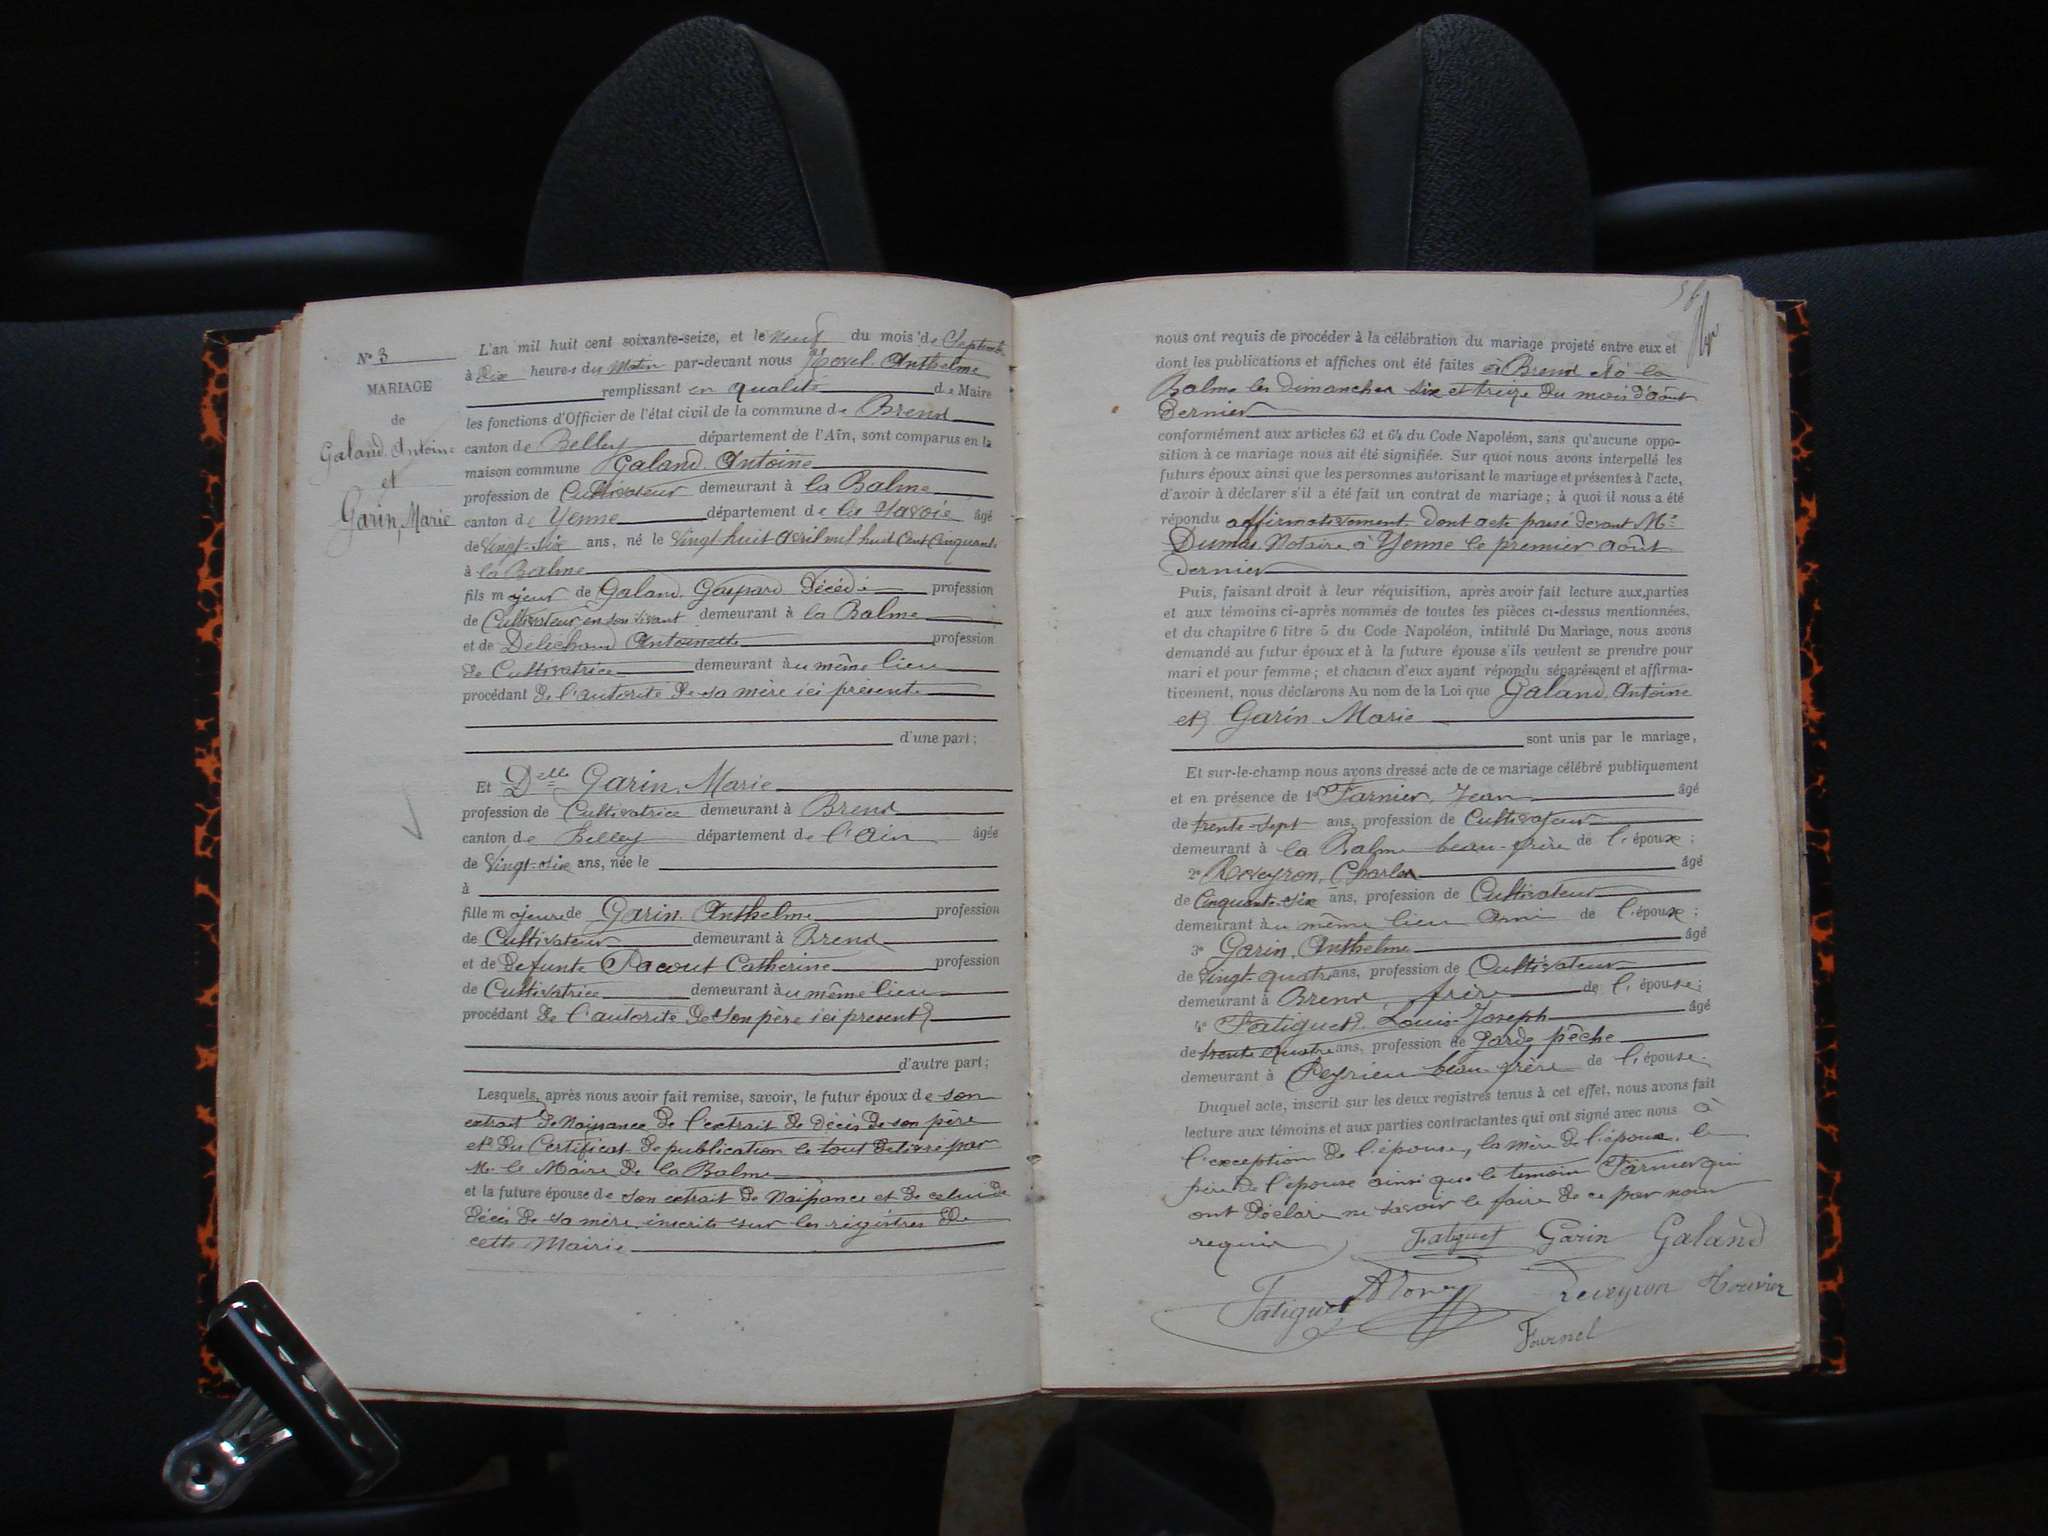 N° 3
MARIAGE
de
Galand Antoine
et
Garin, Marie
L'an mil huit cent soixante-seize, et le neuf du mois de Septembre
à dix heures du Matin par-devant nous Anthelme
remplissant en qualité de Maire
les fonctions d'Officier de l'état civil de la commune de Brend
canton de Belley département de l'Ain, sont comparus en la
maison commune Galand Antoine
profession de Cultivateur demeurant à la Balme
canton de Yenne département de la Savoie âgé
de vingt-six ans, né le vingt huit avril mil huit cent cinquante
à la Balme
fils majeur de Galand Gaspard Décédé profession
de Cultivateur en son vivant demeurant à la Balme
et de Antoinette profession
de Cultivatrice demeurant au même lieu
procédant de l'autorité de sa mère ici présente
d'une part;
Et Delle Garin, Marie
profession de Cultivatrice demeurant à Brend
canton de Belley département de l'Ain âgée
de vingt-six ans, née le
à
fille majeure de Garin Anthelme profession
de Cultivateur demeurant à Brend
et de défunte Pacout Catherine profession
de Cultivatrice demeurant au même lieu
procédant de l'autorité de son père ici présent
d'autre part;
Lesquels, après nous avoir fait remise, savoir, le futur époux de son
extrait de Naissance de l'extrait de décès de son père
et du Certificat de publication le tout delivré par
Mr le Maire de la Balme
et la future épouse de son extrait de Naissance et de celui de
décès de sa mère inscrits sur les régistres de
cette Mairie
nous ont requis de procéder à la célébration du mariage projeté entre eux et
dont les publications et affiches ont été faites à Brend et à la
Balme les dimanches six et treize du mois d'août
dernier
conformément aux articles 63 et 64 du Code Napoléon, sans qu'aucune oppo-
sition à ce mariage nous ait été signifiée. Sur quoi nous avons interpellé les
futurs époux ainsi que les personnes autorisant le mariage et présentes à l'acte,
d'avoir à déclarer s'il a été fait un contrat de mariage; à quoi il nous a été
répondu affirmativement dont acte passé devant Me
Dumas Notaire à Yenne le premier août
dernier
Puis, faisant droit à leur réquisition, après avoir fait lecture aux parties
et aux témoins ci-après nommés de toutes les pièces ci-dessus mentionnées,
et du chapitre 6 titre 5 du Code Napoléon, intitulé Du Mariage, nous avons
demandé au futur époux et à la future épouse s'ils veulent se prendre pour
mari et pour femme; et chacun d'eux ayant répondu séparément et affirma-
tivement, nous déclarons Au nom de la Loi que Galand Antoine
et Garin Marie
sont unis par le mariage,
Et sur-le-champ nous avons dressé acte de ce mariage célébré publiquement
et en présence de 1° Farnier, Jean âgé
de trente-sept ans, profession de Cultivateur
demeurant à la Balme beau-frère de l'époux;
2° Reveyron, Charles âgé
de Cinquante-six ans, profession de Cultivateur
demeurant au même lieu ami de l'époux;
3° Garin, Anthelme âgé
de vingt-quatre ans, profession de Cultivateur
demeurant à Brend, frère de l'épouse;
4° Fatiguet, Louis Joseph âgé
de trente quatre ans, profession de garde pêche
demeurant à Peyrieu beau-frère de l'épouse.
Duquel acte, inscrit sur les deux registres tenus à cet effet, nous avons fait
lecture aux témoins et aux parties contractantes qui ont signé avec nous à
l'exception de l'épouse, la mère de l'époux, le
père de l'épouse ainsi que le temoin Farnier qui
ont déclaré ne savoir le faire de ce par nous
requis
Fatiguet Garin Galand
Fatiguet Reveyron Houvier
Fournel